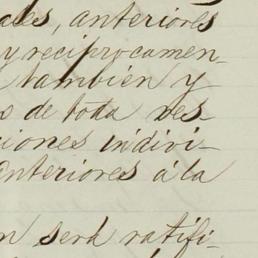 ales, anteriores
y reciprocamen-
también y
s de toda res-
ciones indivi-
anteriores á la
n será ratifi-